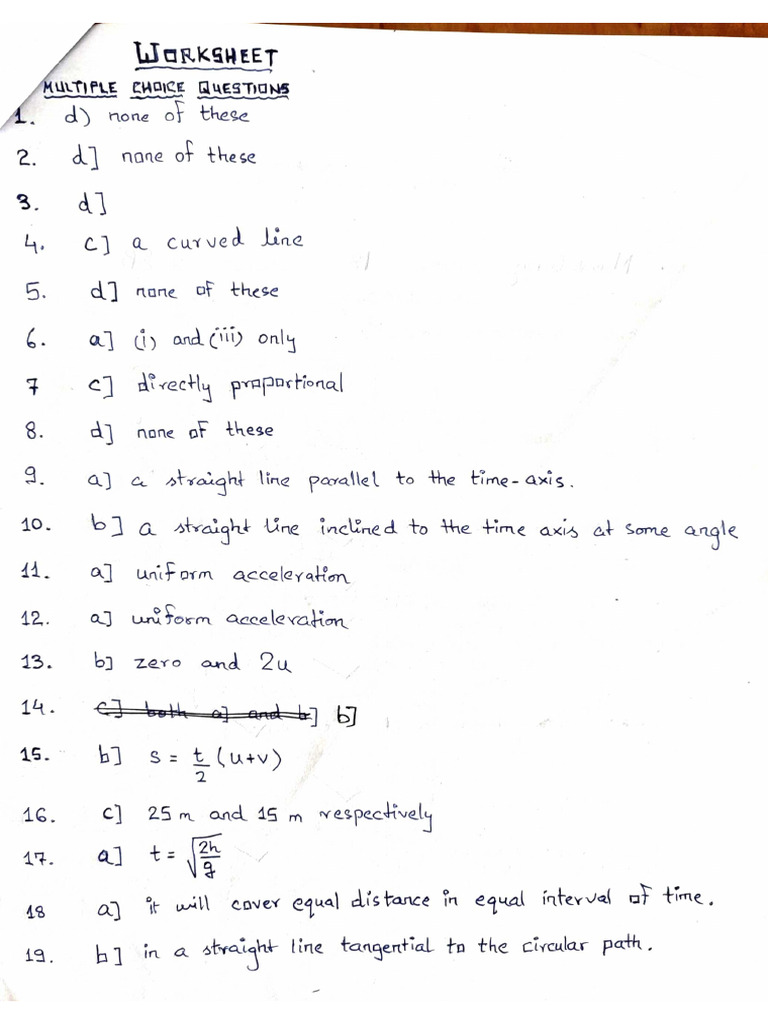 WORKSHEET
MULTIPLE CHOICE QUESTIONS
1. d) none of these
2. d] none of these
3. d]
4. c] a curved line
5. d] none of these
6. a] (i) and (iii) only
7 c] directly proportional
8. d] none of these
9. a] a straight line parallel to the time-axis.
10. b] a straight line inclined to the time axis at some angle
11. a] uniform acceleration
12. a] uniform acceleration
13. b] zero and 2u
14. c] both a] and b] b]
15. b] s = t/2 (u+v)
16. c] 25 m and 15 m respectively
17. a] t = √2h/g
18 a] it will cover equal distance in equal interval of time.
19. b] in a straight line tangential to the circular path.